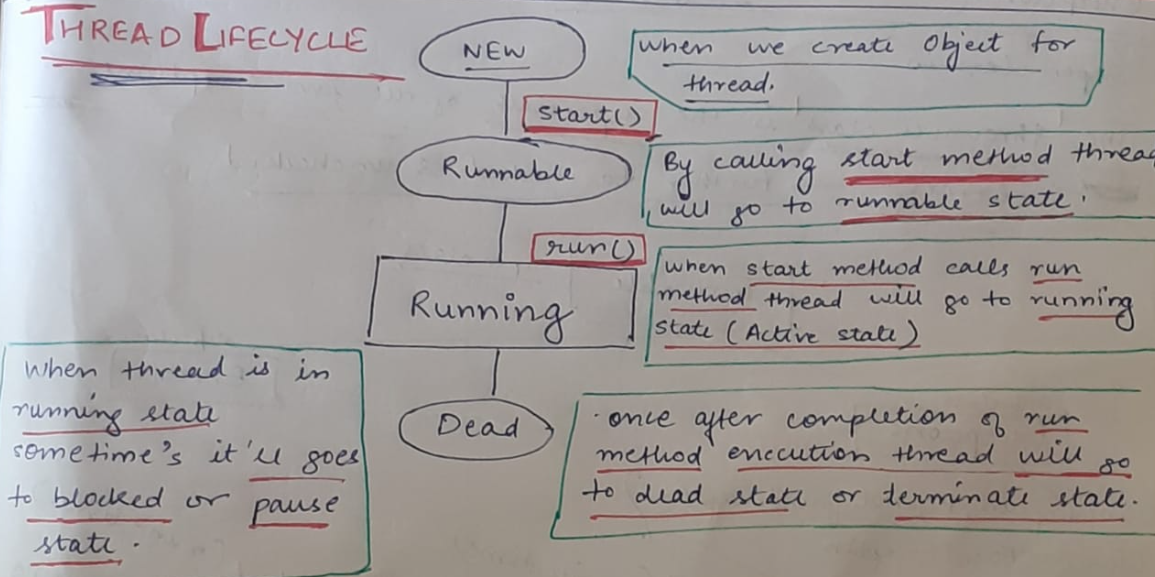 THREAD LIFECYCLE
NEW
when we create Object for
thread.
start()
Runnable
By calling start method threa
will go to runnable state.
run()
when start method calls run
method thread will go to running
state (Active state)
Running
when thread is in
running state
sometime's it'll goes
to blocked or pause
state.
Dead
once after completion of run
method enecution thread will go
to dead state or terminate state.